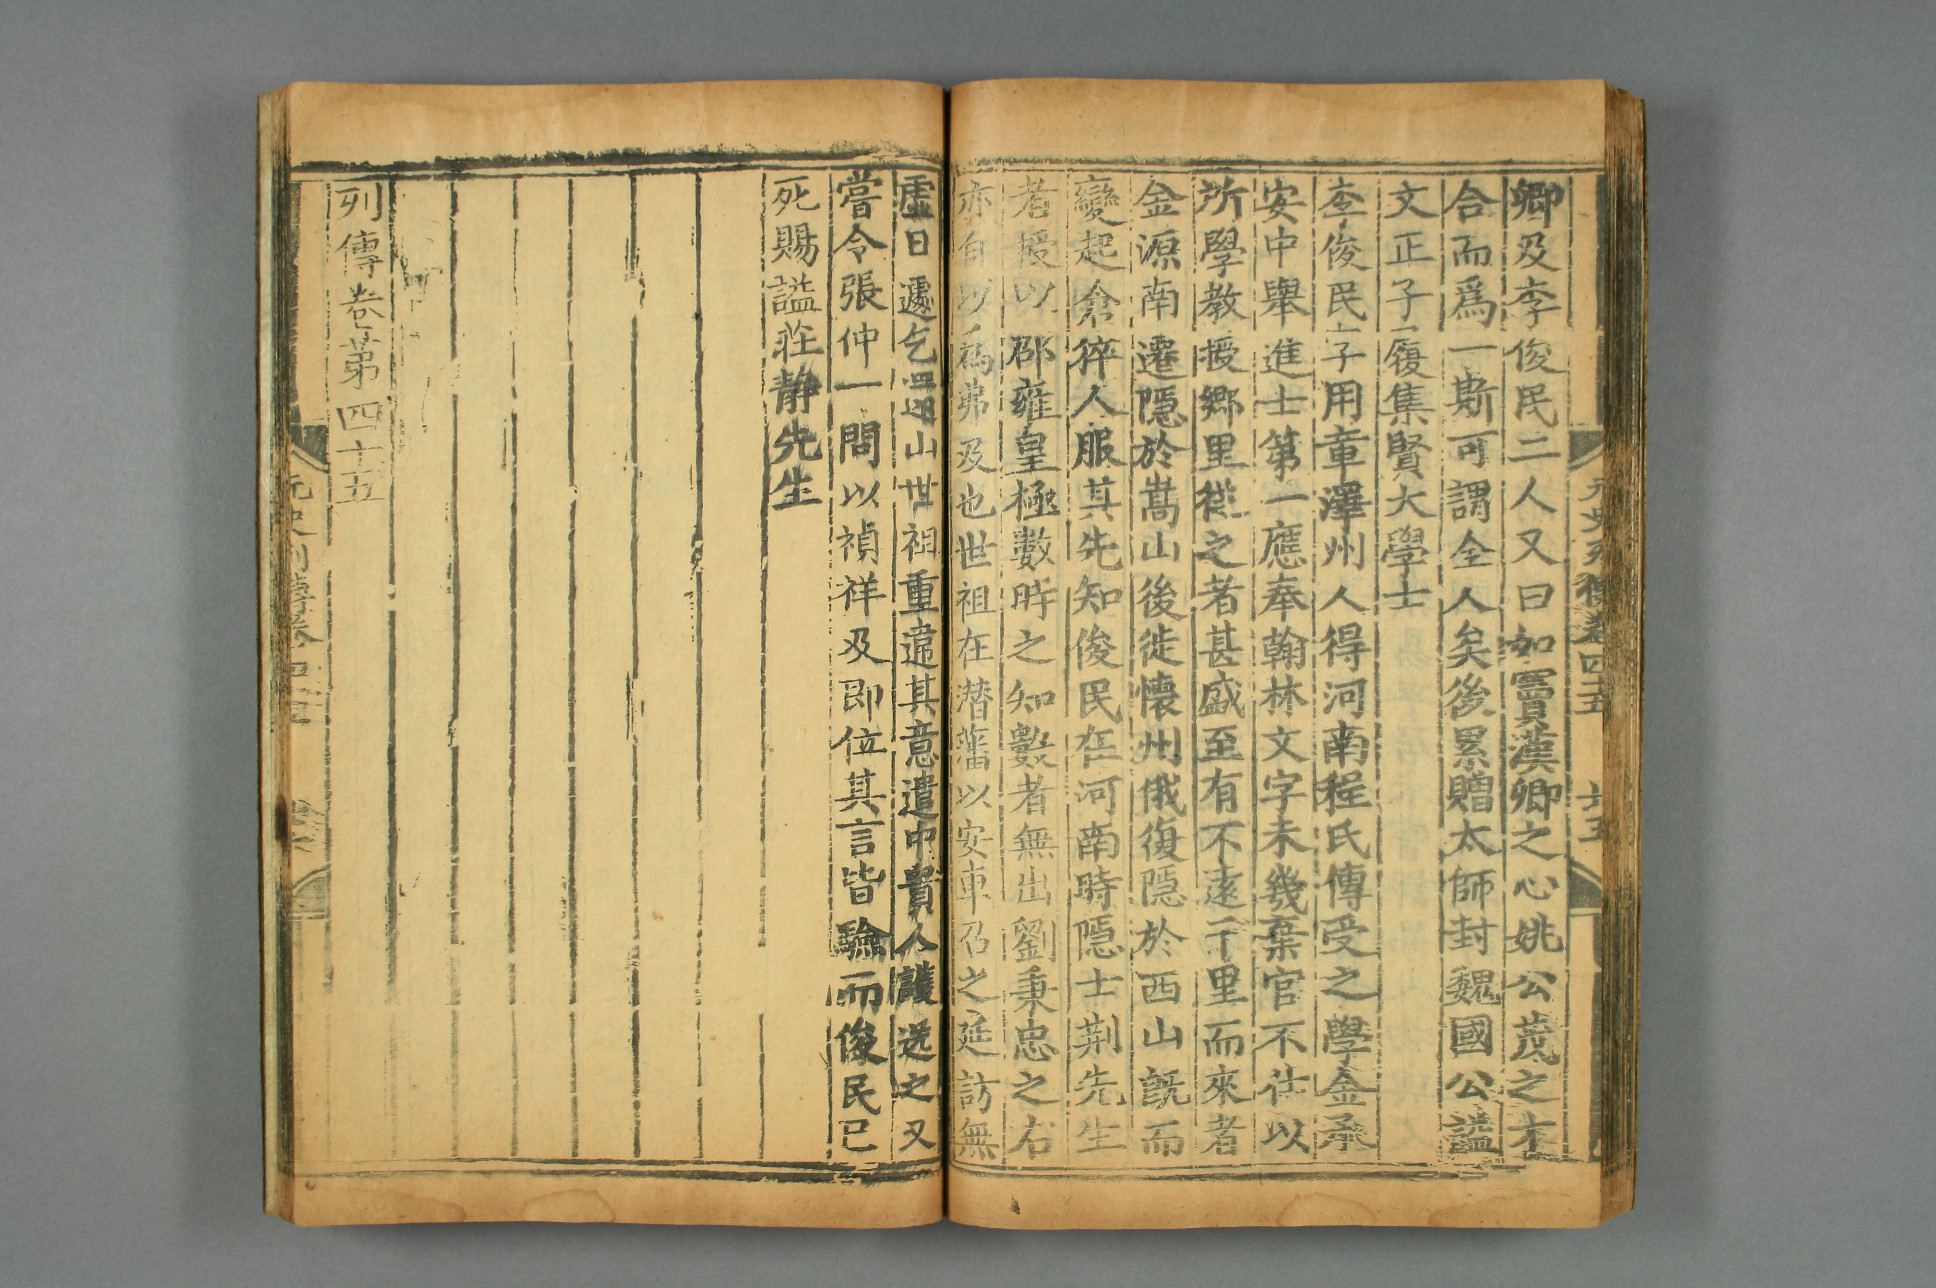 元史列傳卷四十五 十五
卿及李俊民二人又曰如竇漢卿之心姚公茂之才
合而爲一斯可謂全人矣後累贈太師封魏國公謚
文正子履集賢大學士
李俊民字用章澤州人得河南程氏傳受之學金承
安中舉進士第一應奉翰林文字未幾棄官不仕以
所學教授鄉里從之者甚盛至有不遠千里而來者
金源南遷隱於嵩山後徙懷州俄復隱於西山旣而
變起倉猝人服其先知俊民在河南時隱士荆先生
者授以邵雍皇極數時之知數者無出劉秉忠之右
亦自以爲弗及也世祖在潛藩以安車召之延訪無
虛日遽乞還山世祖重違其意遣中貴人護送之又
嘗令張仲一問以禎祥及即位其言皆驗而俊民已
死賜謚莊静先生
列傳卷第四十五
元史列傳卷四十五